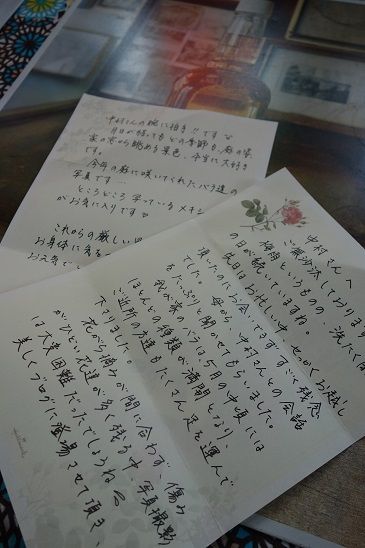 中村さんへ
ご無沙汰しております
梅雨というものの、洗たく
の日が続いていますね。
先日はお忙しい中、せっかくお越し
頂いたのにお会いできずすごく残念
でした。母から、中村さんとの会話
もたっぷりと聞かせてもらいました。
我が家のバラは5月の中頃には
ほとんどの種類が満開となり、
ご近所の友達もたくさん足を運んで
下さりました。
花がら摘みが間に合わず、傷み
がひどい花達が多く残る中、写真撮影
は大変困難だったでしょうね
美しくブログに登場させて頂き、
中村さんの腕に拍手!!です
月日が経ってもどの季節も、庭の
家の窓から眺める景色、本当に大好き
です。
今年の庭に咲いてくれたバラ達の
写真です…
ところどころ写っているメキシ
がお気に入りです
これからの厳しい
お身体に気を
お元気で